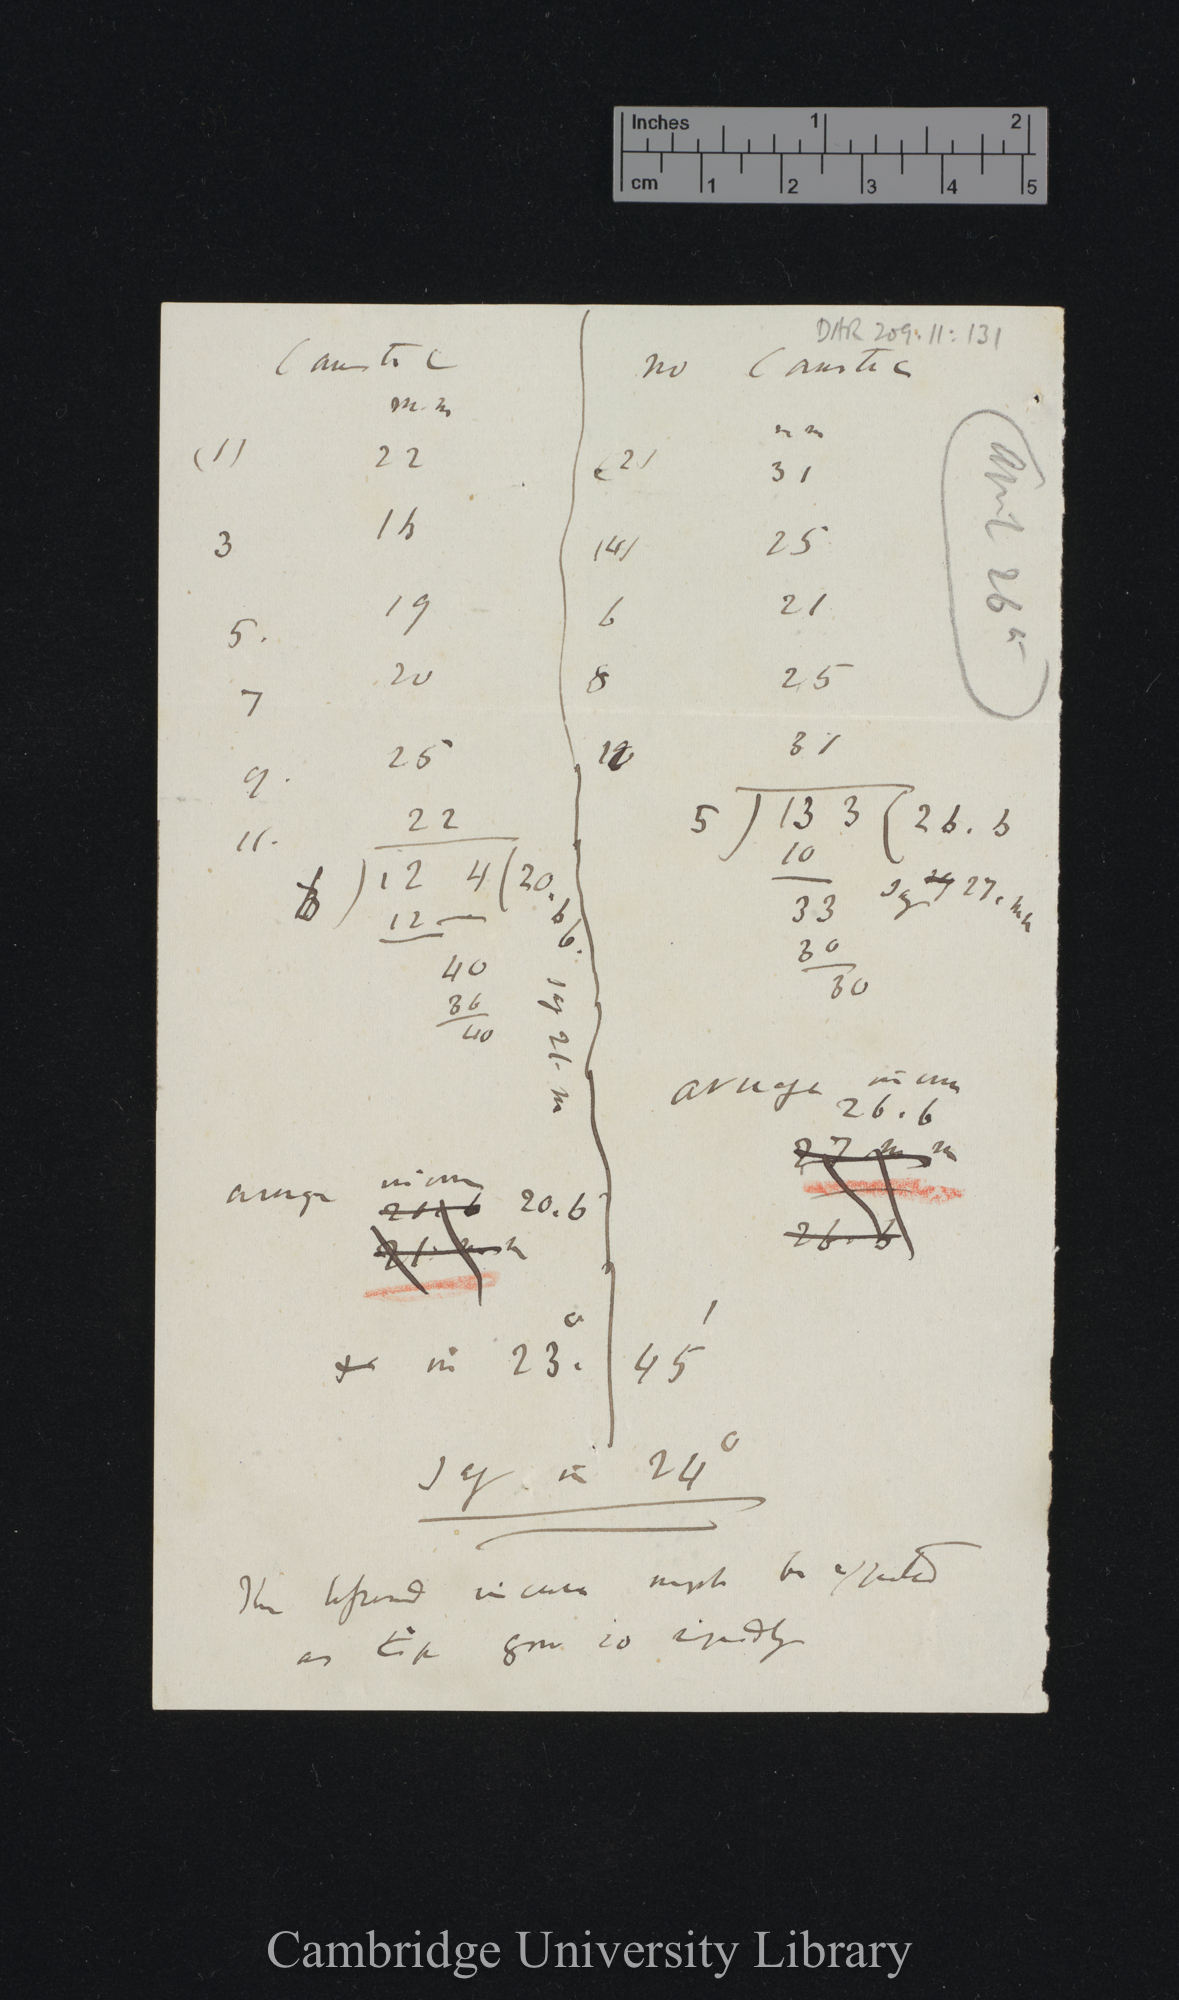 Inches 1 2
cm 1 2 3 4 5
DAR 209.11:131
Caustic
m.m
(1) 22
3 16
5. 19
7 20
9. 25
11. 22
6 ) 12 4 ( 20.66.
12
40
36
40
say 21. m
average in cm
21.6 20.6
21. m m
no Caustic
m m
(2) 31
(4) 25
6 21
8 25
10 31
5 ) 13 3 ( 26.6
10
33
30
30
say 27. mm
average in cm
26.6
27 m m
26.6
April 26th
in 23°. 45'
say in 24°
The be expected
as tip grow so rapidly
Cambridge University Library